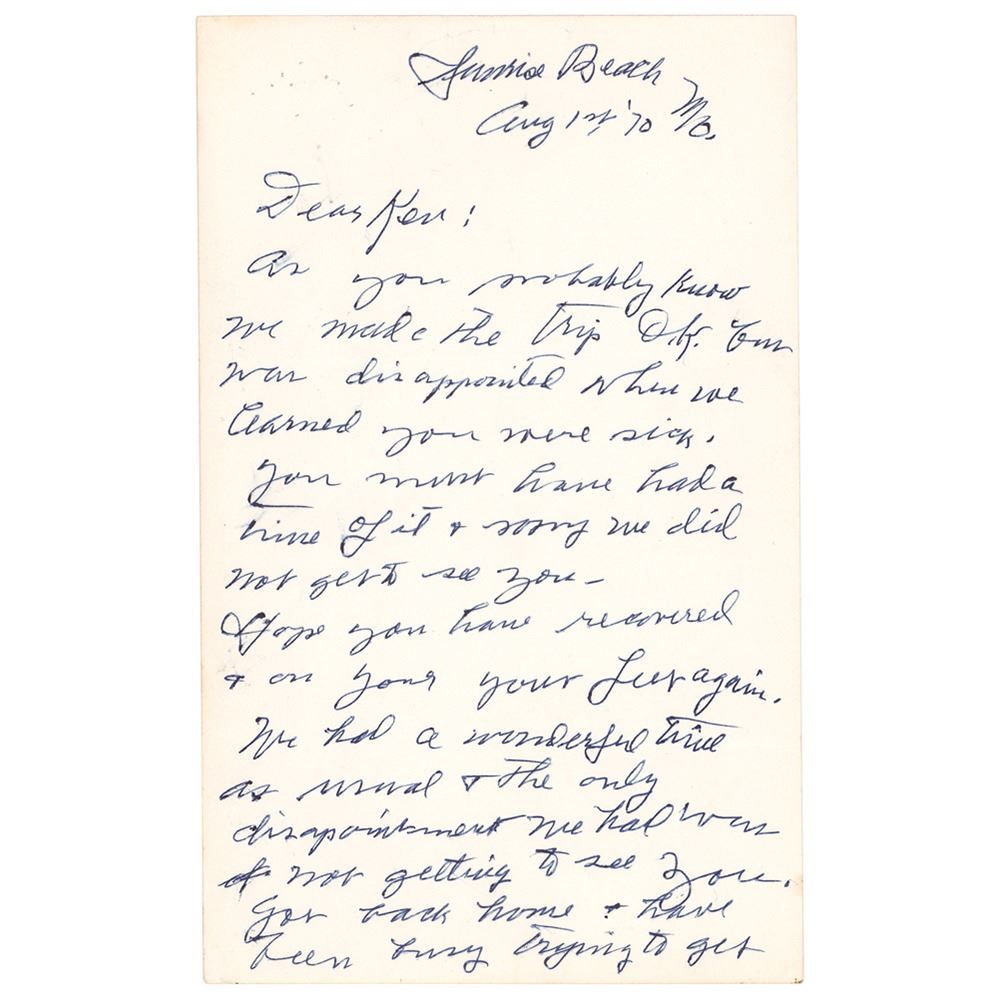 Sunrise Beach
Aug 1st '70 Mo.
Dear Ken:
As you probably know
we made the trip O.K. but
was disappointed when we
learned you were sick.
You must have had a
time of it & sorry we did
not get to see you -
Hope you have recovered
& on your your feet again.
We had a wonderful time
as usual & the only
disapointment we had was
not getting to see you.
Got back home & have
been busy trying to get